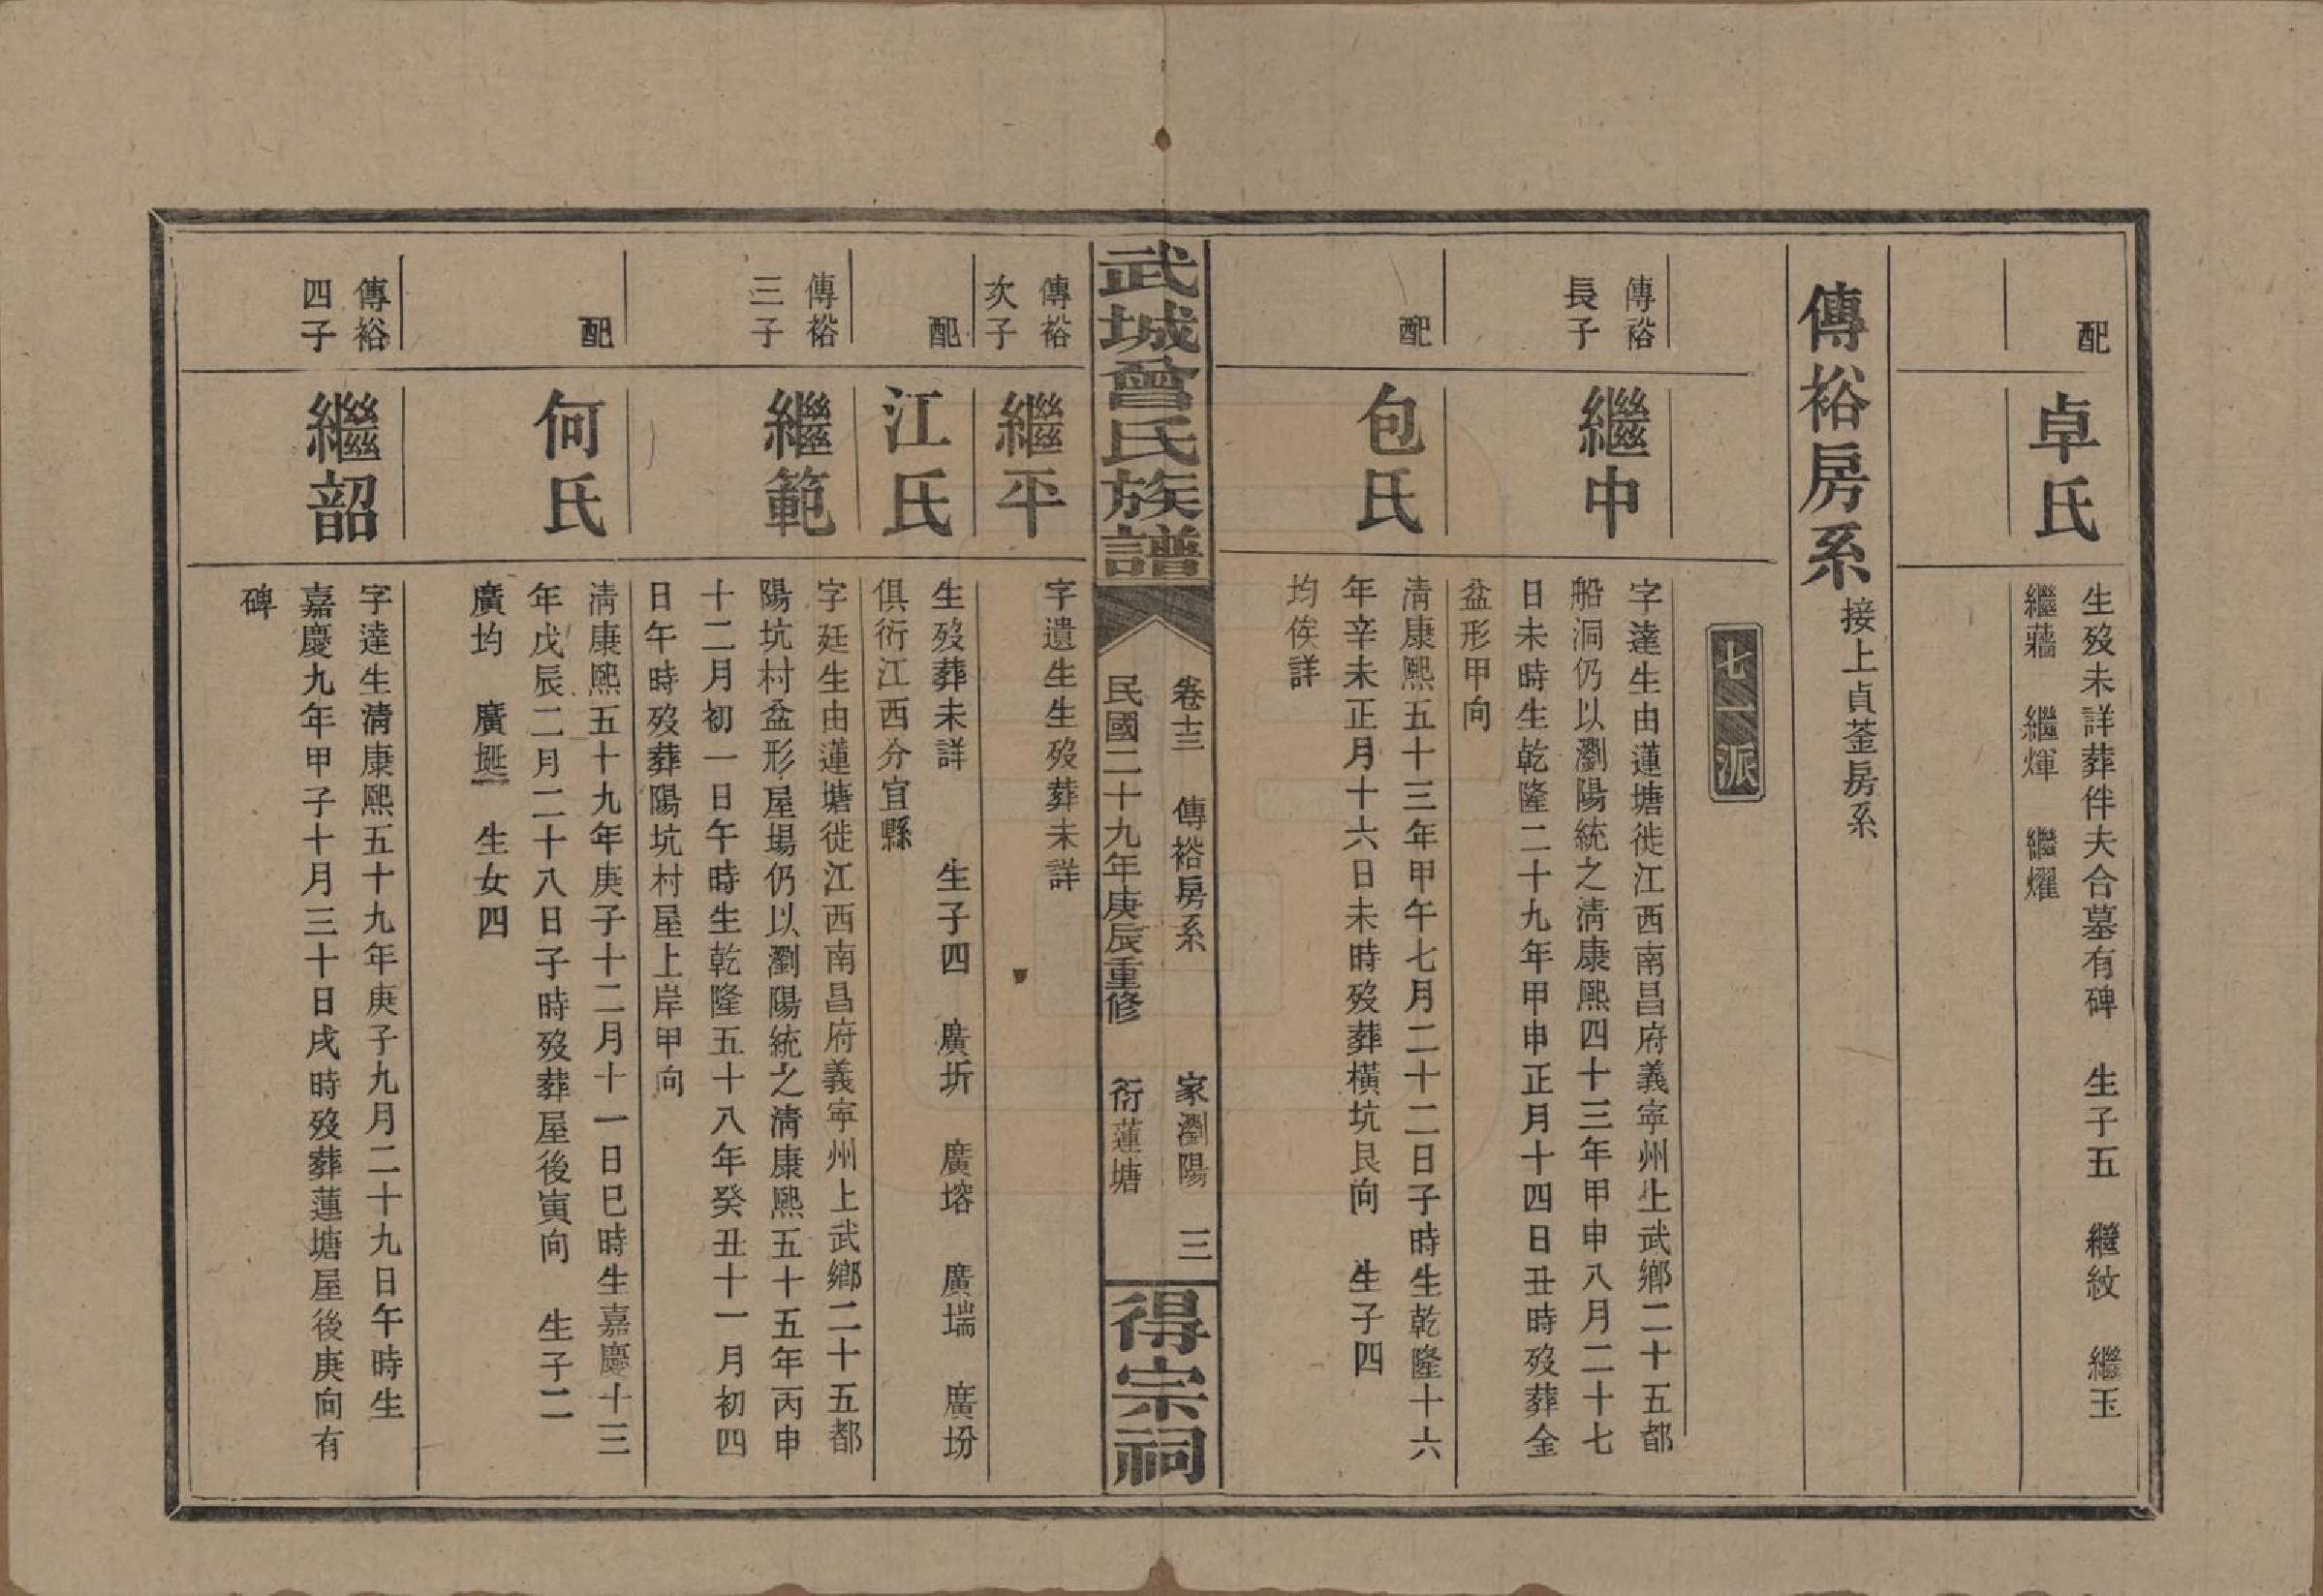 配
卓氏
生歿未詳葬伴夫合墓有碑　生子五　繼紋　繼玉
繼藩　繼煇　繼燿
傳裕房系接上貞荃房系
七一派
傳裕
長子
繼中
字達生由蓮塘徙江西南昌府義寧州上武鄉二十五都
船洞仍以瀏陽統之淸康熙四十三年甲申八月二十七
日未時生乾隆二十九年甲申正月十四日丑時歿葬金
盆形甲向
配
包氏
淸康熙五十三年甲午七月二十二日子時生乾隆十六
年辛未正月十六日未時歿葬橫坑艮向　生子四
均俟詳
武城曾氏族譜
卷十三　傳裕房系　家瀏陽　三
民國二十九年庚辰重修　衍蓮塘
得宗祠
傳裕
次子
繼平
字遺生生歿葬未詳
配
江氏
生歿葬未詳　生子四　廣圻　廣塎　廣瑞　廣坋
俱衍江西分宜縣
傳裕
三子
繼範
字廷生由蓮塘徙江西南昌府義寧州上武鄉二十五都
陽坑村盆形屋場仍以瀏陽統之淸康熙五十五年丙申
十二月初一日午時生乾隆五十八年癸丑十一月初四
日午時歿葬陽坑村屋上岸甲向
配
何氏
淸康熙五十九年庚子十二月十一日巳時生嘉慶十三
年戊辰二月二十八日子時歿葬屋後寅向　生子二
廣均　廣埏　生女四
傳裕
四子
繼韶
字達生淸康熙五十九年庚子九月二十九日午時生
嘉慶九年甲子十月三十日戌時歿葬蓮塘屋後庚向有
碑